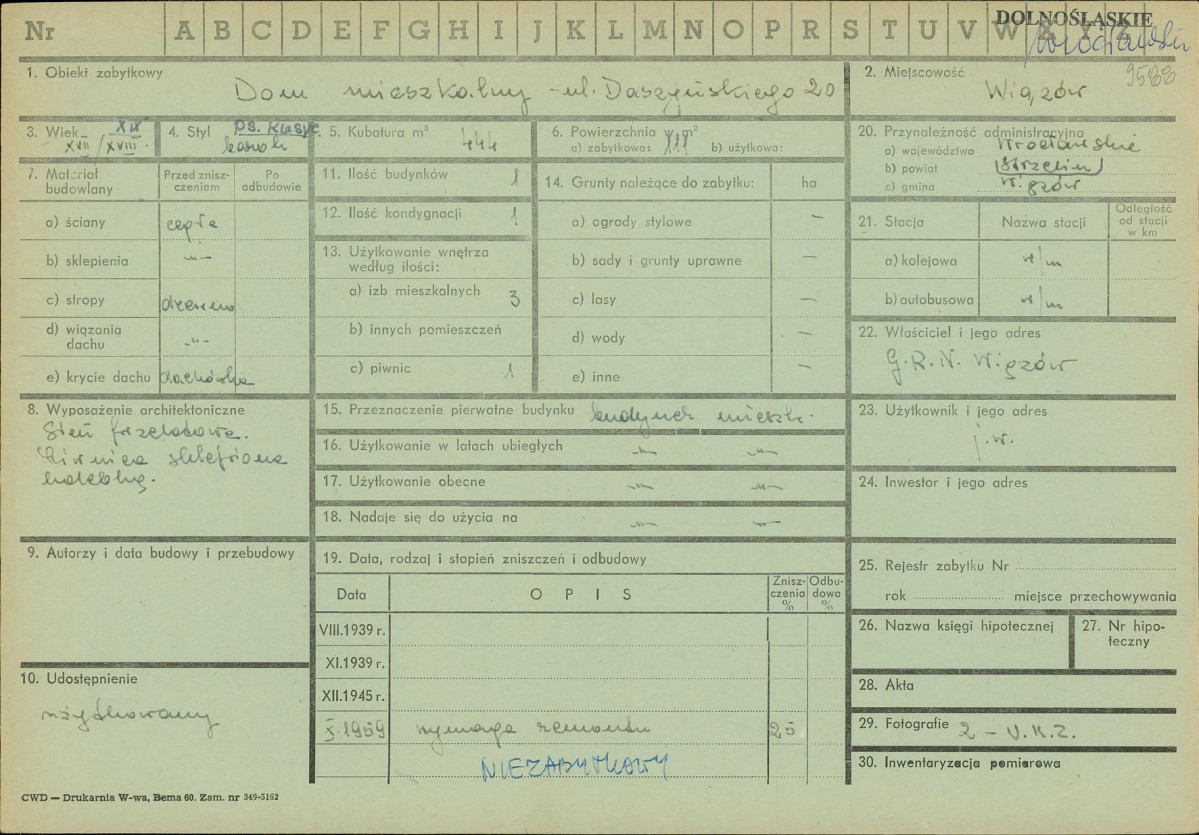 Nr A B C D E F G H I J K L M N O P R S T U V W X Y Z
DOLNOŚLĄSKIE
Wrocławski
9588
1. Obiekt zabytkowy
Dom mieszkalny - ul. Daszyńskiego 20
2. Miejscowość
Wiązów
3. Wiek
XIX
XVII/XVIII.
4. Styl
ps. klasyc.
barok
5. Kubatura m³
444
6. Powierzchnia m²
a) zabytkowa: 111 b) użytkowa:
20. Przynależność administracyjna
a) województwo Wrocławskie
b) powiat (Strzelin)
c) gmina Wiązów
7. Materiał budowlany
Przed zniszczeniem
Po odbudowie
a) ściany cegła
b) sklepienia -"-
c) stropy drewno
d) wiązania dachu -"-
e) krycie dachu dachówka
11. Ilość budynków 1
12. Ilość kondygnacji 1
13. Użytkowanie wnętrza według ilości:
a) izb mieszkalnych 3
b) innych pomieszczeń
c) piwnic 1
14. Grunty należące do zabytku: ha
a) ogrody stylowe —
b) sady i grunty uprawne —
c) lasy —
d) wody —
e) inne —
21. Stacja
Nazwa stacji
Odległość od stacji w km
a) kolejowa w/m
b) autobusowa w/m
22. Właściciel i jego adres
G.R.N. Wiązów
8. Wyposażenie architektoniczne
Sień przelotowa.
Piwnica sklepiona
kolebką.
15. Przeznaczenie pierwotne budynku budynek mieszk.
16. Użytkowanie w latach ubiegłych -"- -"-
17. Użytkowanie obecne -"- -"-
18. Nadaje się do użycia na -"- -"-
23. Użytkownik i jego adres
j.w.
24. Inwestor i jego adres
9. Autorzy i data budowy i przebudowy
19. Data, rodzaj i stopień zniszczeń i odbudowy
Data
O P I S
Zniszczenia %
Odbudowa %
VIII.1939 r.
XI.1939 r.
XII.1945 r.
X.1959 wymaga remontu 25
NIEZABYTKOWY
25. Rejestr zabytku Nr
rok miejsce przechowywania
26. Nazwa księgi hipotecznej
27. Nr hipoteczny
10. Udostępnienie
użytkowany
28. Akta
29. Fotografie 2 - U.K.Z.
30. Inwentaryzacja pomiarowa
CWD — Drukarnia W-wa, Bema 60. Zam. nr 349-5162